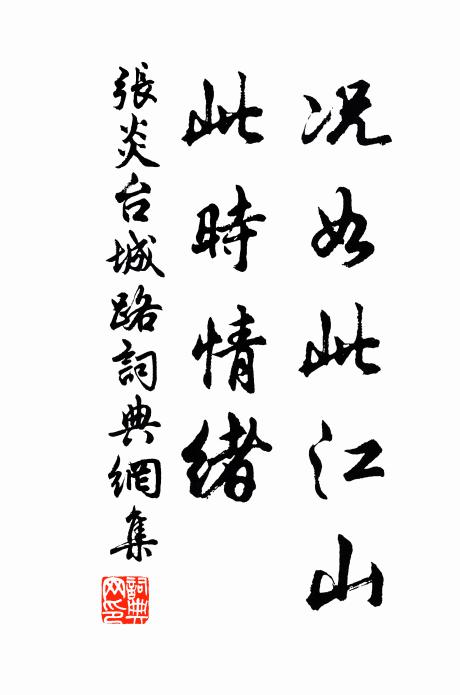 况如此江山
此時情緒
張炎台城路詞典網集
詞典網印